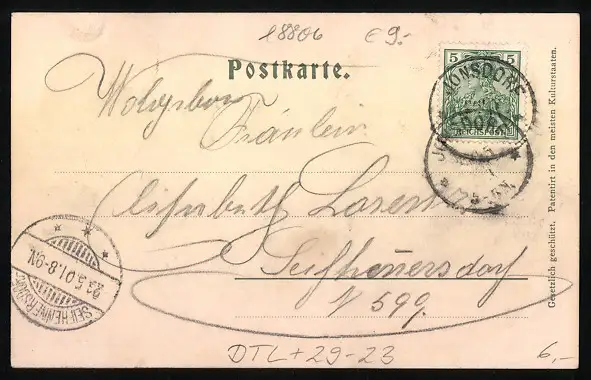 18806 € 9.-
Postkarte.
5 5
REICHSPOST
JONSDORF
Fräulein
Elisabeth
Seifhennersdorf
N 599.
SEIFHENNERSDORF
23.5.01.8-9N.
Gesetzlich geschützt. Patentirt in den meisten Kulturstaaten.
DTL+29-23
6,-